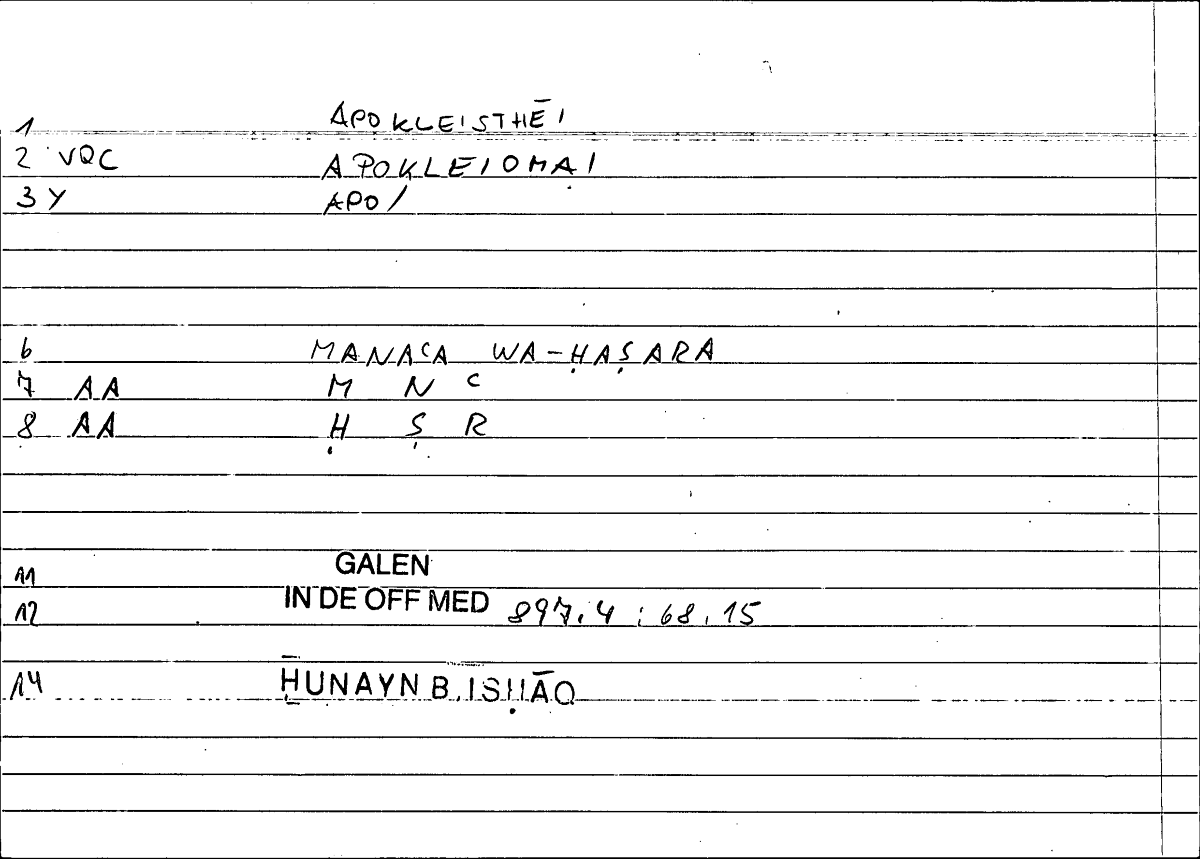 1 APOKLEISTHĒI
2 VQC APOKLEIOMAI
3 Y APO/
6 MANAᶜA WA-ḤAṢARA
7 AA M N ᶜ
8 AA Ḥ Ṣ R
11 GALEN
12 IN DE OFF MED 897.4 : 68.15
14 ḤUNAYN B. ISḤĀQ